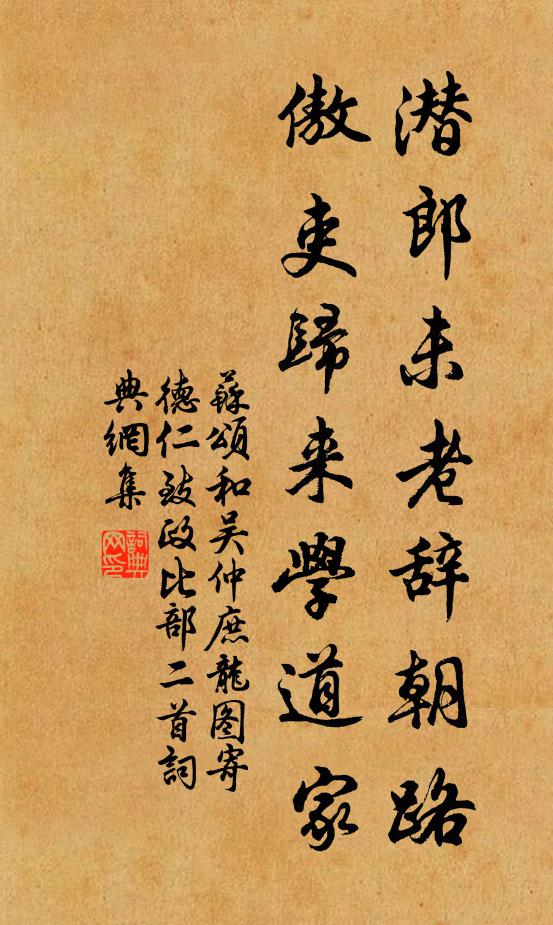 潜郎未老辞朝路
傲吏歸来學道家
蘇頌和吴仲庶龍图寄
德仁致政比部二首詞
典網集
詞典
网印